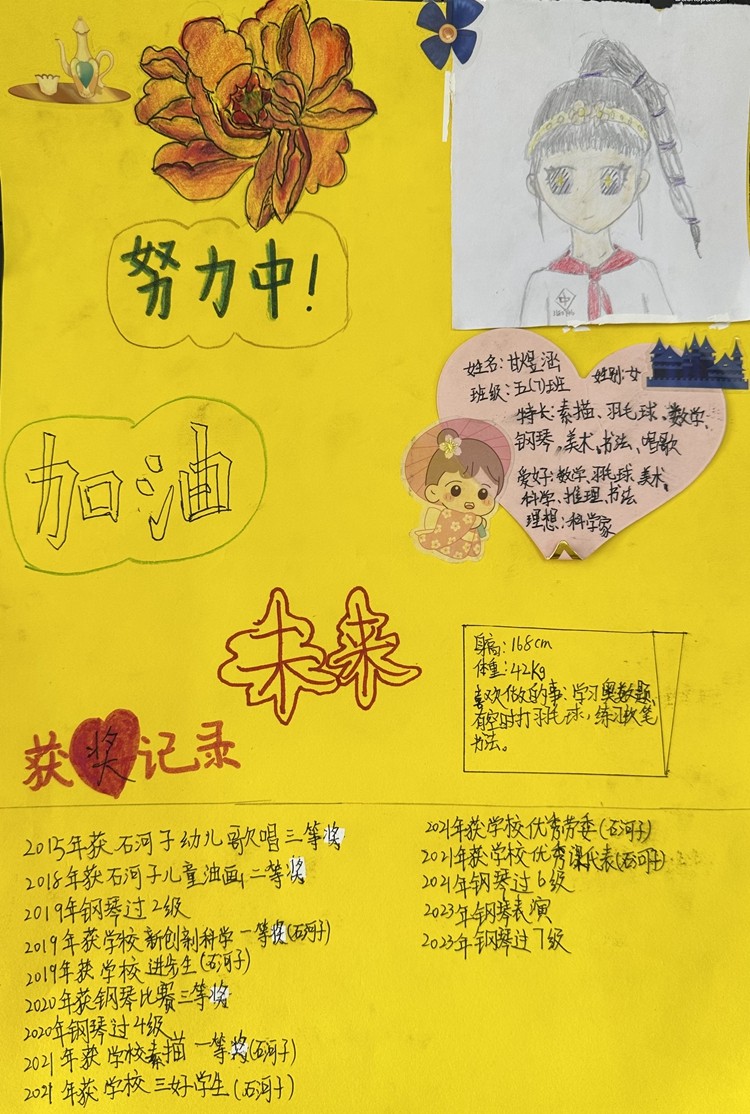 努力中!
姓名:甘煜涵 姓别:女
班级:五(7)班
特长:素描、羽毛球、数学、
钢琴、美术、书法、唱歌
爱好:数学、羽毛球、美术、
科学、推理、书法
理想:科学家
加油
未来
身高:168cm
体重:42Kg
喜欢做的事:学习奥数题、
有空时打羽毛球,练习软笔
书法。
获奖记录
2015年获石河子幼儿歌唱三等奖
2018年获石河子儿童油画二等奖
2019年钢琴过2级
2019年获学校新创制科学一等奖(石河子)
2019年获学校进步生(石河子)
2020年获钢琴比赛三等奖
2020年钢琴过4级
2021年获学校素描一等奖(石河子)
2021年获学校三好学生(石河子)
2021年获学校优秀劳委(石河子)
2021年获学校优秀课代表(石河子)
2021年钢琴过6级
2023年钢琴表演
2023年钢琴过7级